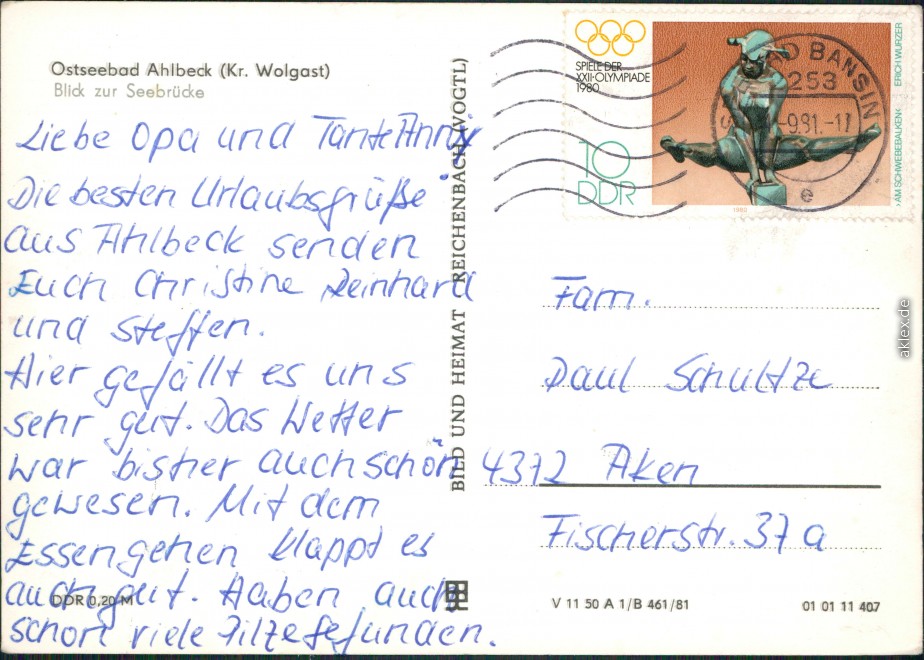 Ostseebad Ahlbeck (Kr. Wolgast)
Blick zur Seebrücke
Liebe Opa und Tante Anni
Die besten Urlaubsgrüße
aus Ahlbeck senden
Euch Christine Reinhard
und Steffen.
Hier gefällt es uns
sehr gut. Das Wetter
war bisher auch schön
gewesen. Mit dem
Essengehen klappt es
auch gut. Haben auch
schon viele Pilze gefunden.
DDR 0,20 M
BILD UND HEIMAT REICHENBACH (VOGTL)
SPIELE DER
XXII·OLYMPIADE
1980
10
DDR
1980
›AM SCHWEBEBALKEN‹ ERICH WURZER
BAD BANSIN
2253
-9.81.-11
e
Fam.
Paul Schultze
4372 Aken
Fischerstr. 37 a
V 11 50 A 1/B 461/81
01 01 11 407
aklex.de